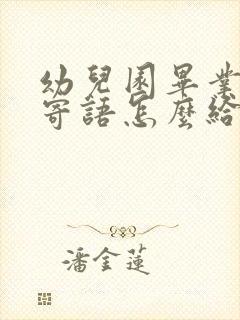 幼兒園畢業
寄語怎麼給
潘金蓮